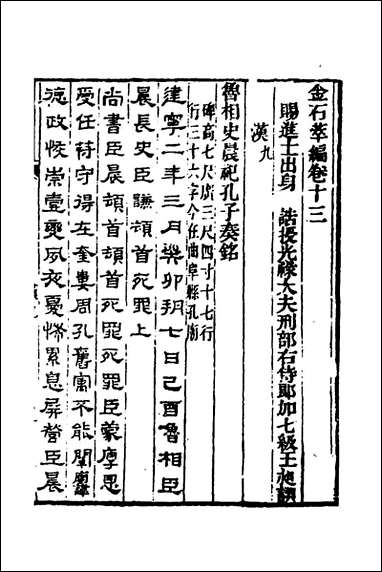 金石萃編卷十三
賜進士出身 誥授光祿大夫刑部右侍郎加七級王昶譔
漢九
魯相史晨祀孔子奏銘
碑高七尺廣三尺四寸十七行
行三十六字今在曲阜縣孔廟
建寧二年三月癸卯朔七日己酉魯相臣
晨長史臣謙頓首死罪上
尚書臣晨頓首頓首死罪死罪臣蒙厚恩
受任符守得在奎婁周孔舊寓不能闡弘
德政恢崇壹變夙夜憂怖累息屏營臣晨